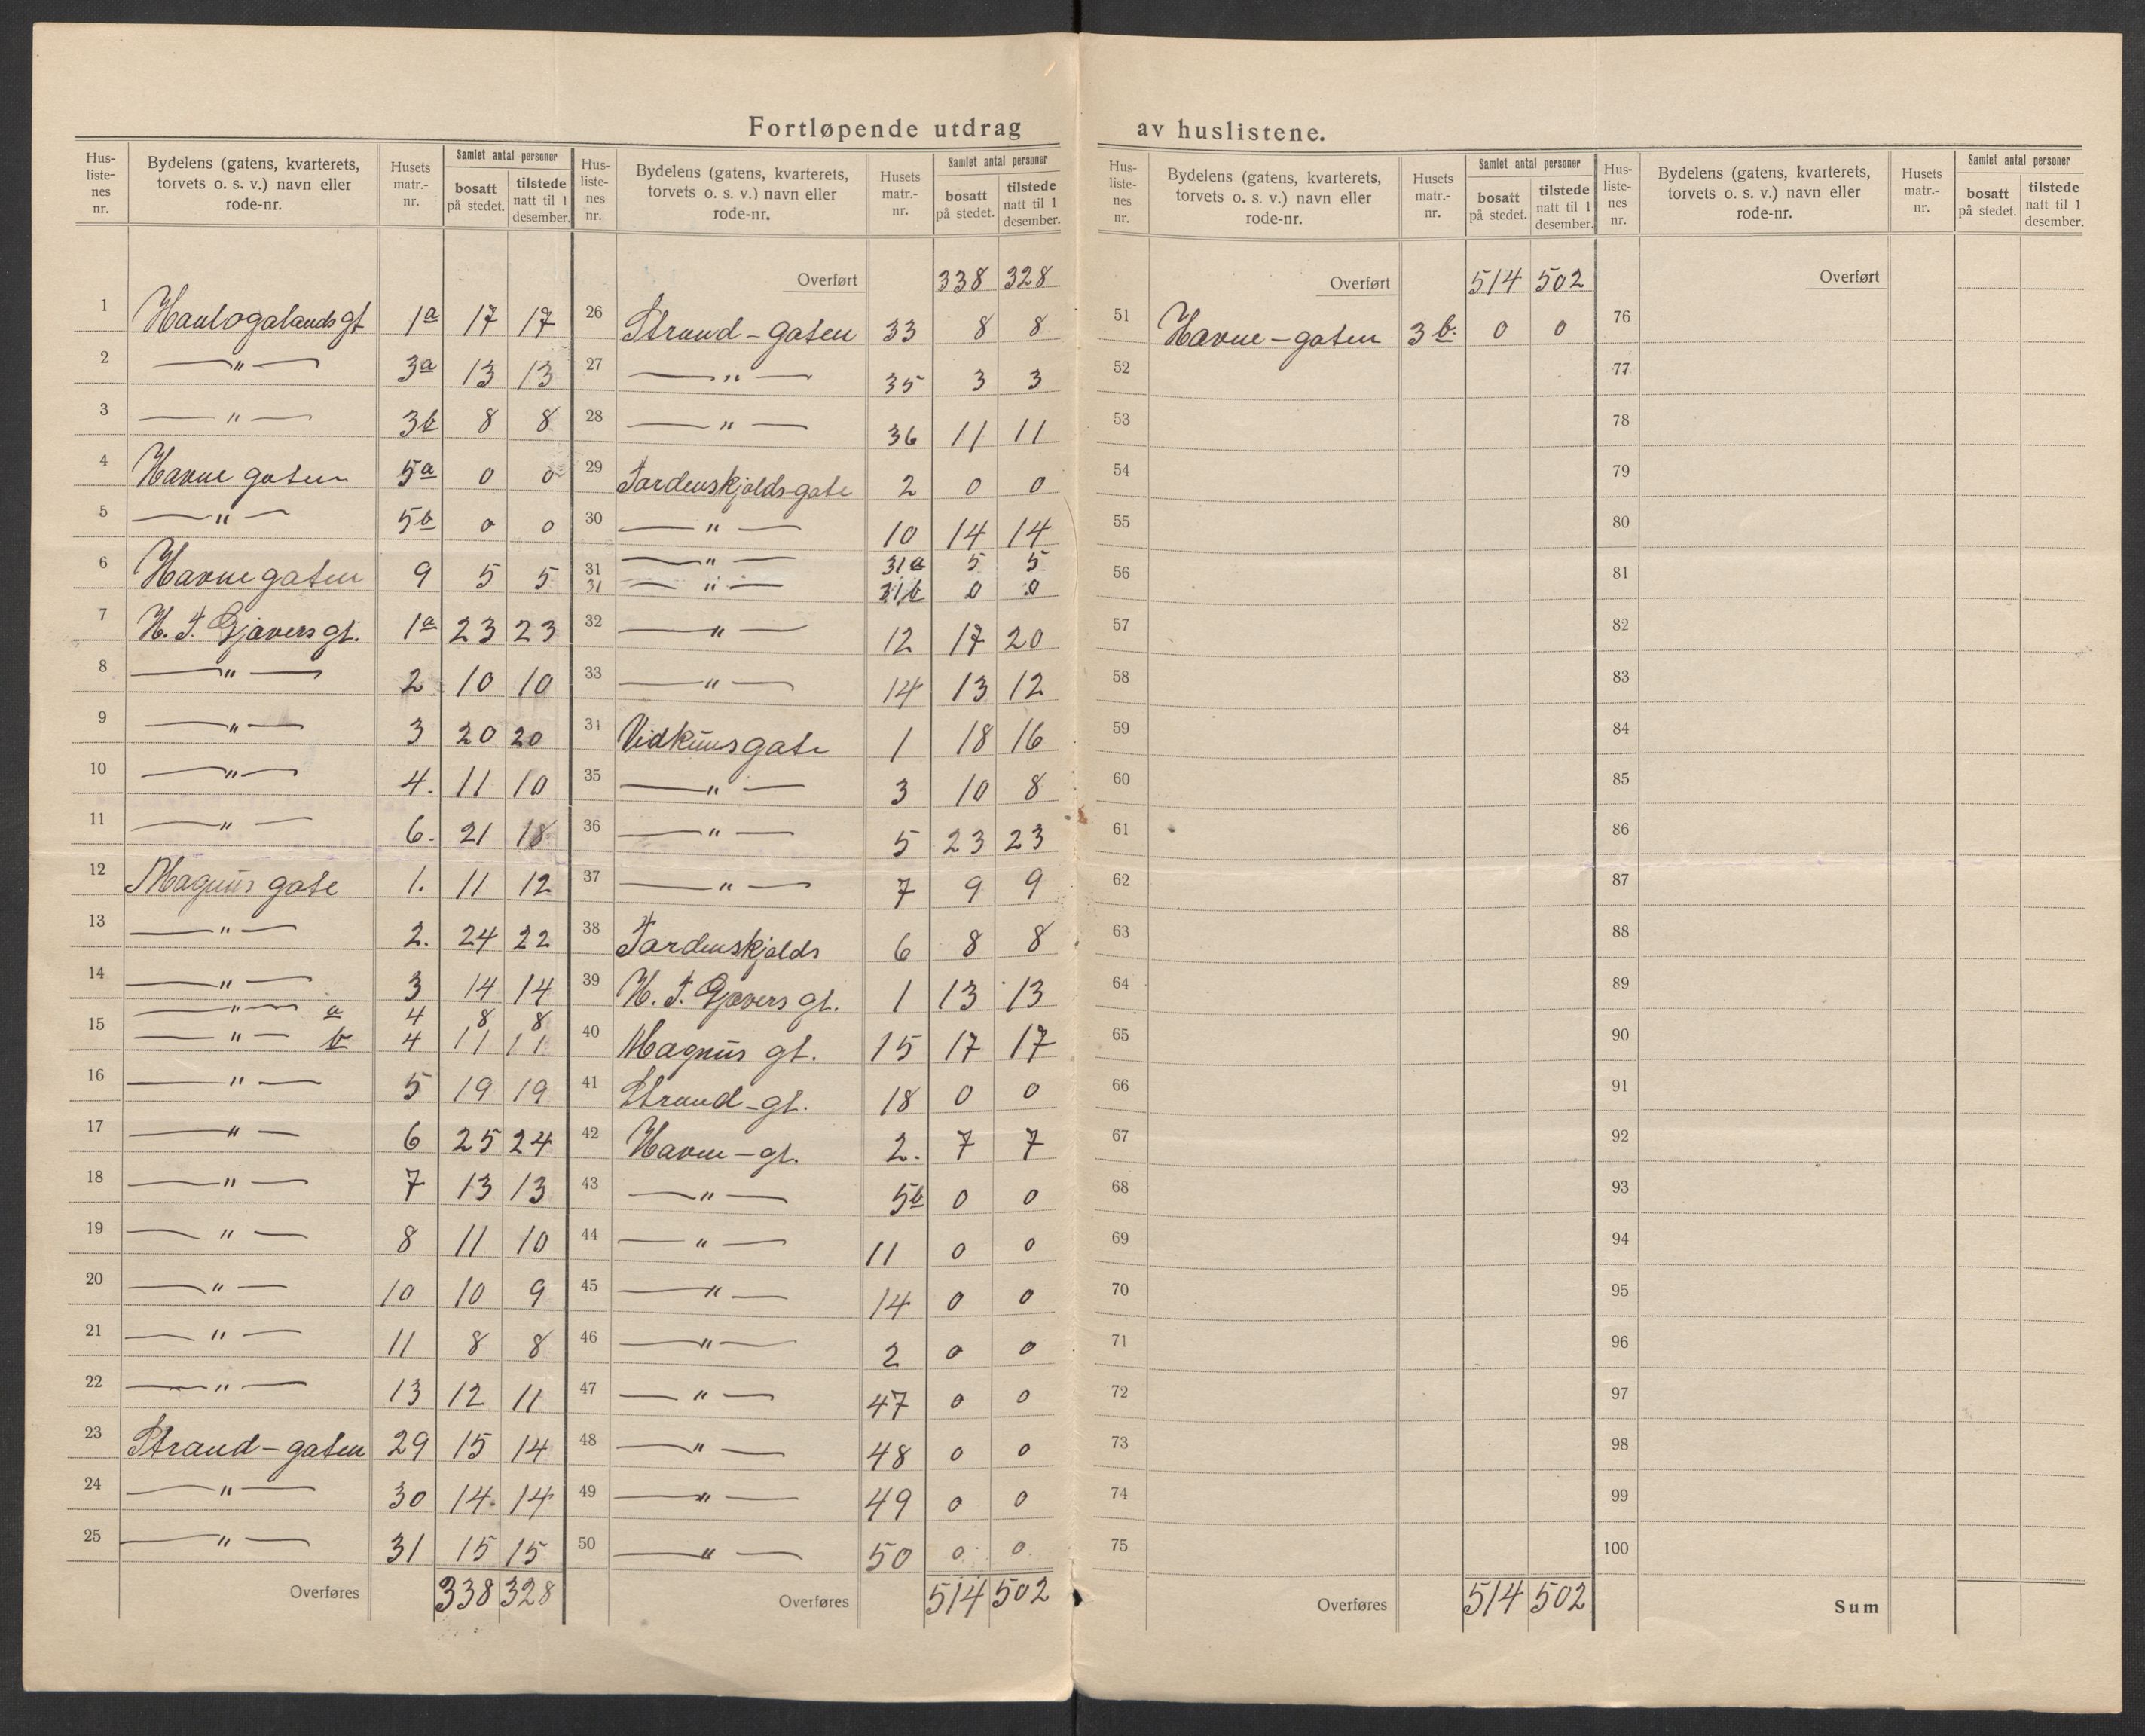 Fortløpende utdrag av huslistene.
Hus-listenes nr. | Bydelens (gatens, kvarterets, torvets o. s. v.) navn eller rode-nr. | Husets matr.-nr. | Samlet antal personer | bosatt på stedet. | tilstede natt til 1 desember.
1 Haalogalandsgt 1a 17 17
2 —"— 3a 13 13
3 —"— 3b 8 8
4 Havnegaten 5a 0 0
5 —"— 5b 0 0
6 Havnegaten 9 5 5
7 H. T. Gjæversgt. 1a 23 23
8 —"— 2 10 10
9 —"— 3 20 20
10 —"— 4. 11 10
11 —"— 6. 21 18
12 Magnus gate 1. 11 12
13 —"— 2. 24 22
14 —"— 3 14 14
15 —"— a 4 8 8
—"— b 4 11 11
16 —"— 5 19 19
17 —"— 6 25 24
18 —"— 7 13 13
19 —"— 8 11 10
20 —"— 10 10 9
21 —"— 11 8 8
22 —"— 13 12 11
23 Strand-gaten 29 15 14
24 —"— 30 14 14
25 —"— 31 15 15
Overføres 338 328
Hus-listenes nr. | Bydelens (gatens, kvarterets, torvets o. s. v.) navn eller rode-nr. | Husets matr.-nr. | Samlet antal personer | bosatt på stedet. | tilstede natt til 1 desember.
Overført 338 328
26 Strand-gaten 33 8 8
27 —"— 35 3 3
28 —"— 36 11 11
29 Tordenskjoldsgate 2 0 0
30 —"— 10 14 14
31 —"— 31a 5 5
31 —"— 31b 0 0
32 —"— 12 17 20
33 —"— 14 13 12
34 Vidkunsgate 1 18 16
35 —"— 3 10 8
36 —"— 5 23 23
37 —"— 7 9 9
38 Tordenskjolds 6 8 8
39 H. T. Gjævers gt. 1 13 13
40 Magnus gt. 15 17 17
41 Strand-gt. 18 0 0
42 Havne-gt. 2. 7 7
43 —"— 5b 0 0
44 —"— 11 0 0
45 —"— 14 0 0
46 —"— 2 0 0
47 —"— 47 0 0
48 —"— 48 0 0
49 —"— 49 0 0
50 —"— 50 0 0
Overføres 514 502
Hus-listenes nr. | Bydelens (gatens, kvarterets, torvets o. s. v.) navn eller rode-nr. | Husets matr.-nr. | Samlet antal personer | bosatt på stedet. | tilstede natt til 1 desember.
Overført 514 502
51 Havne-gaten 3b. 0 0
52
53
54
55
56
57
58
59
60
61
62
63
64
65
66
67
68
69
70
71
72
73
74
75
Overføres 514 502
Hus-listenes nr. | Bydelens (gatens, kvarterets, torvets o. s. v.) navn eller rode-nr. | Husets matr.-nr. | Samlet antal personer | bosatt på stedet. | tilstede natt til 1 desember.
Overført
76
77
78
79
80
81
82
83
84
85
86
87
88
89
90
91
92
93
94
95
96
97
98
99
100
Sum